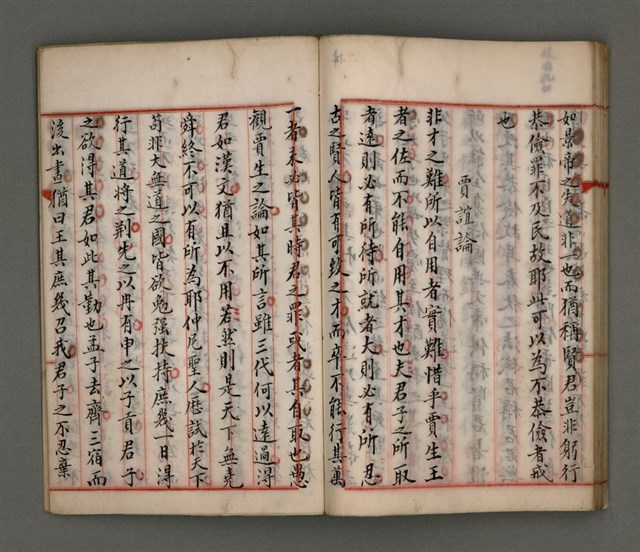 如景帝之失道非一也而猶稱賢君豈非躬行
恭儉罪不及民故耶此可以為不恭儉者戒
也
賈誼論
非才之難所以自用者實難惜乎賈生王
者之佐而不能自用其才也夫君子之所取
者遠則必有所待所就者大則必有所忍
古之賢人皆有可致之才而卒不能行其萬
一者未必皆其時君之罪或者其自取也愚
觀賈生之論如其所言雖三代何以遠過得
君如漢文猶且以不用若然則是天下無堯
舜終不可以有所為耶仲尼聖人歷試於天下
苟非大無道之國皆欲勉強扶持庶幾一日得
行其道將之荊先之以冉有申之以子貢君子
之欲得其君如此其勤也孟子去齊三宿而
後出晝猶曰王其庶幾召我君子之不忍棄